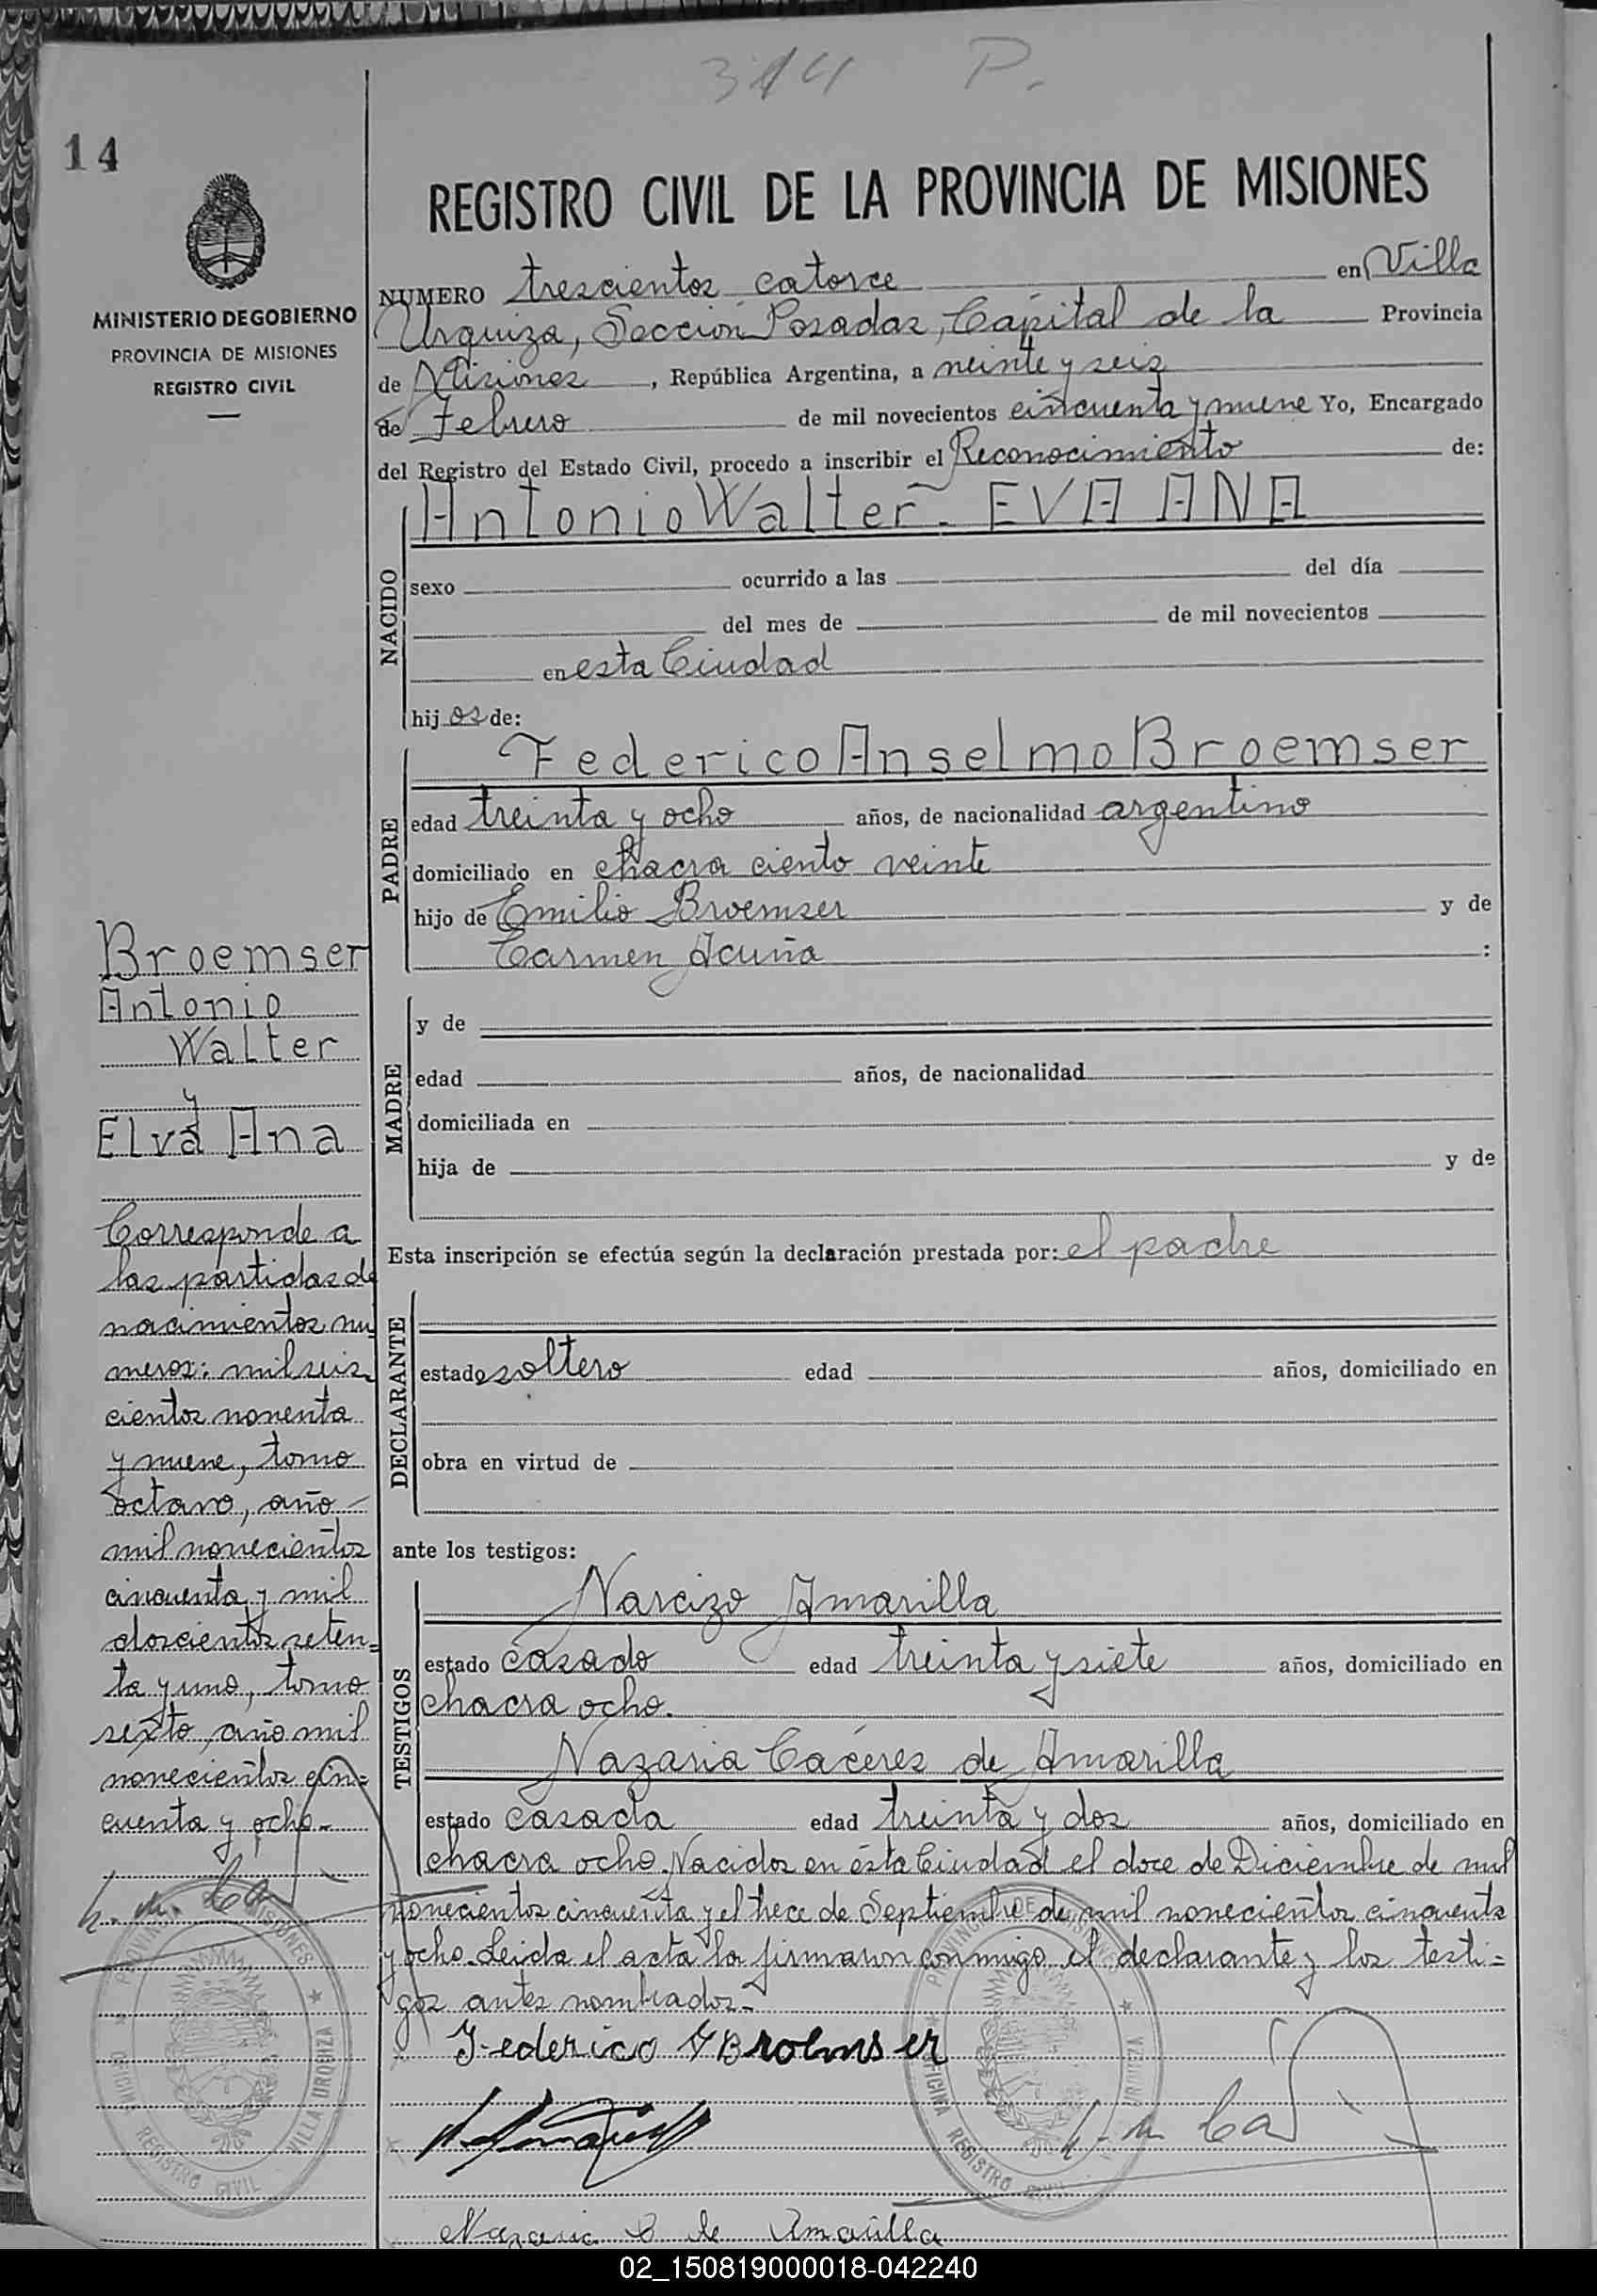 314 P.
14
REGISTRO CIVIL DE LA PROVINCIA DE MISIONES
MINISTERIO DE GOBIERNO
PROVINCIA DE MISIONES
REGISTRO CIVIL
NUMERO trescientos catorce en Villa
Urquiza, Sección Posadas, Capital de la Provincia
de Misiones, República Argentina, a veinte y seis
de Febrero de mil novecientos cincuenta y nueve Yo, Encargado
del Registro del Estado Civil, procedo a inscribir el Reconocimiento de:
Antonio Walter - EVA ANA
NACIDO
sexo ocurrido a las del día
del mes de de mil novecientos
en esta Ciudad
hijos de:
Federico Anselmo Broemser
PADRE
edad treinta y ocho años, de nacionalidad argentino
domiciliado en chacra ciento veinte
hijo de Emilio Broemser y de
Carmen Acuña :
MADRE
y de
edad años, de nacionalidad
domiciliada en
hija de y de
Esta inscripción se efectúa según la declaración prestada por: el padre
DECLARANTE
estado soltero edad años, domiciliado en
obra en virtud de
ante los testigos:
TESTIGOS
Narcizo Amarilla
estado casado edad treinta y siete años, domiciliado en
chacra ocho.
Nazaria Cáceres de Amarilla
estado casada edad treinta y dos años, domiciliado en
chacra ocho. Nacidos en ésta Ciudad el doce de Diciembre de mil
novecientos cincuenta y el trece de Septiembre de mil novecientos cincuenta
y ocho. Leida el acta la firmaron conmigo el declarante y los testi=
gos antes nombrados.-
Federico A Broemser
Nazaria C de Amarilla
Broemser
Antonio
Walter
y
Elva Ana
Corresponde a
las partidas de
nacimientos nu
meros: mil seis
cientos noventa
y nueve, tomo
octavo, año
mil novecientos
cincuenta y mil
doscientos seten=
ta y uno, tomo
sexto, año mil
novecientos cin=
cuenta y ocho.-
PROVINCIA DE MISIONES
OFICINA REGISTRO CIVIL VILLA URQUIZA
PROVINCIA DE MISIONES
OFICINA REGISTRO CIVIL VILLA URQUIZA
02_150819000018-042240